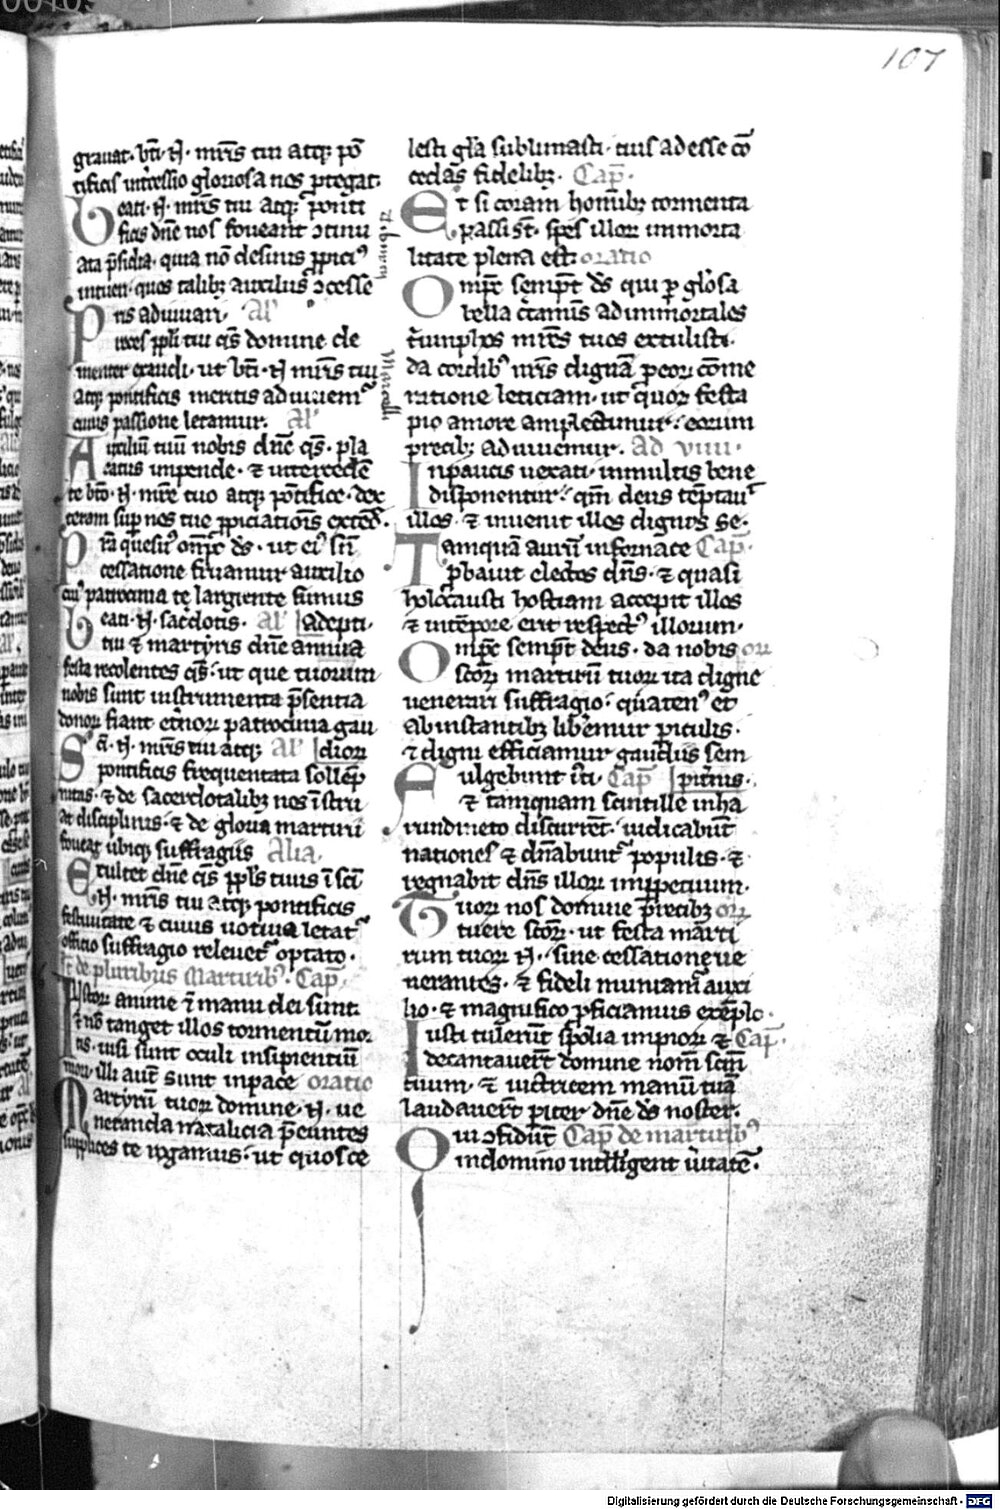 107
grauat. bt̄i .N. mr̄is tui atq; pō
tificis int̾cessio gloriosa nos p̱tegat.
Beati .N. mr̄is tui atq; pontí
ficis dn̄e nos foueant ↄtinu
ata p̄sidia. quia nō desinis ꝓpici9
intueri. quos talib; auxiliis ↄcesse
ris adiuuari. Al'
Preces ppl̄i tui qs̄ domine cle
menter exaudi. ut bt̄i .N. mr̄is tui
atq; pontificis meritis adiuuem͛
cuius passione letamur. Al'
Auxiliū tuū nobis dn̄e qs̄. pla
catus impende. & intercedēte
bt̄o .N. mr̄e tuo atq; pōtifice. dex
teram sup̱ nos tue ꝓpiciatiōis extēd̄.
cessatione fruamur auxilio
cui9 patrocinia te largiente sumus
Beati .N. sacerdotis. Al' adepti.
tui & martyris dn̄e annua
festa recolentes qs̄. ut que tuorum
nobis sunt instrumenta p̄sentia
donoꝝ fiant et̾noꝝ patrocinia gau
S̄cī .N. mr̄is tui atq; Al' dioꝝ
pontificis frequentata sollēp
nitas. & de sacerdotalib; nos īstru
at disciplinis. & de gloria martirii
foueat ubiq; suffragiis Alia.
Exultet dn̄e qs̄ ppl̄s tuus ī sc̄i
.N. mr̄is tui atq; pontificis
festiuitate & cuius uotiua letat͛
officio suffragio releuet͛ optato.
de pluribus Martirib9. Cap̄.
Iustoꝝ anime ī manu dei sunt
& nō tanget illos tormentū mor
tis. uisi sunt oculi insipientiū
mori. illi aut̄ sunt in pace oratio
Martyrū tuoꝝ domine .N. ue
neranda natalicia p̄euntes
supplices te rogamus. ut quos ce
Tiburtij
Marcelli
lesti gl̄ia sublimasti. tuis adesse cō
cedas fidelib;. Cap̄.
Et si coram hominib; tormenta
passi st̄. spes illoꝝ immorta
litate plena est. oratio
Omp̄c semp̄t̄ ds̄ qui p̱ glosa
bella c̾taminis ad immortales
t̾umphos mr̄es tuos extulisti.
da cordib9 nr̄is dignā p̱ eoꝝ cōme
ratione leticiam. ut quoꝝ festa
pio amore amplectimur. eorum
precib; adiuuemur. Ad viiii.
In paucis uexati. in multis bene
disponentur. qm̄ deus tēptau͛
illos. & inuenit illos dignos se.
Tamquā aurū in fornace Cap̄.
p̱bauit electos dn̄s. & quasi
holocausti hostiam accepit illos
& in tēpore erit respect9 illorum.
Omp̄c semp̄t̄ deus. da nobis or̄
sc̄oꝝ martirū tuoꝝ ita digne
uenerari suffragio. quaten9 et
ab instantib; lib̾emur p̱iculis.
& digni efficiamur gaudiis sem
Fulgebunt iu̾sti Cap̄ piternis.
& tamquam scintille in ha
rundineto discurrēt. iudicabūt
nationes & dn̄abunt͛ populis. &
regnabit dn̄s illoꝝ in ꝑpetuum.
Tuoꝝ nos domine p̄cib; or̄
tuere sc̄oꝝ. ut festa marti
rum tuoꝝ .N. sine cessatione ue
nerantes. & fideli muniam͛ auxi
lio. & magnifico ꝓficiamus exēplo.
Iusti tulerūt spolia impioꝝ & Cap̄.
decantauer̄t domine nom̄ sc̄m̄
tuum. & uictricem manū tuā
laudauer̄t parit̾ dn̄e ds̄ noster.
Qui ↄfidūt Cap̄ de martirib9
in domino intelligent u̾itatē.
Digitalisierung gefördert durch die Deutsche Forschungsgemeinschaft - DFG